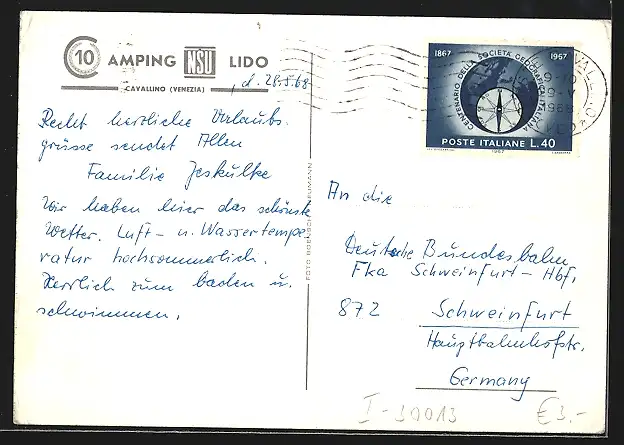 10 CAMPING NSU LIDO
CAVALLINO (VENEZIA)
, d. 28.5.68
Recht herzliche Urlaubs-
grüsse sendet Allen
Familie Jeskulke
Wir haben hier das schönste
Wetter. Luft- u. Wassertempe-
ratur hochsommerlich.
Herrlich zum baden u.
schwimmen.
1867 1967
CENTENARIO DELLA SOCIETÀ GEOGRAFICA ITALIANA
POSTE ITALIANE L.40
1967
An die
Deutsche Bundesbahn
Fka Schweinfurt-Hbf.
872 Schweinfurt
Hauptbahnhofstr.
Germany
I-39013 €3.-